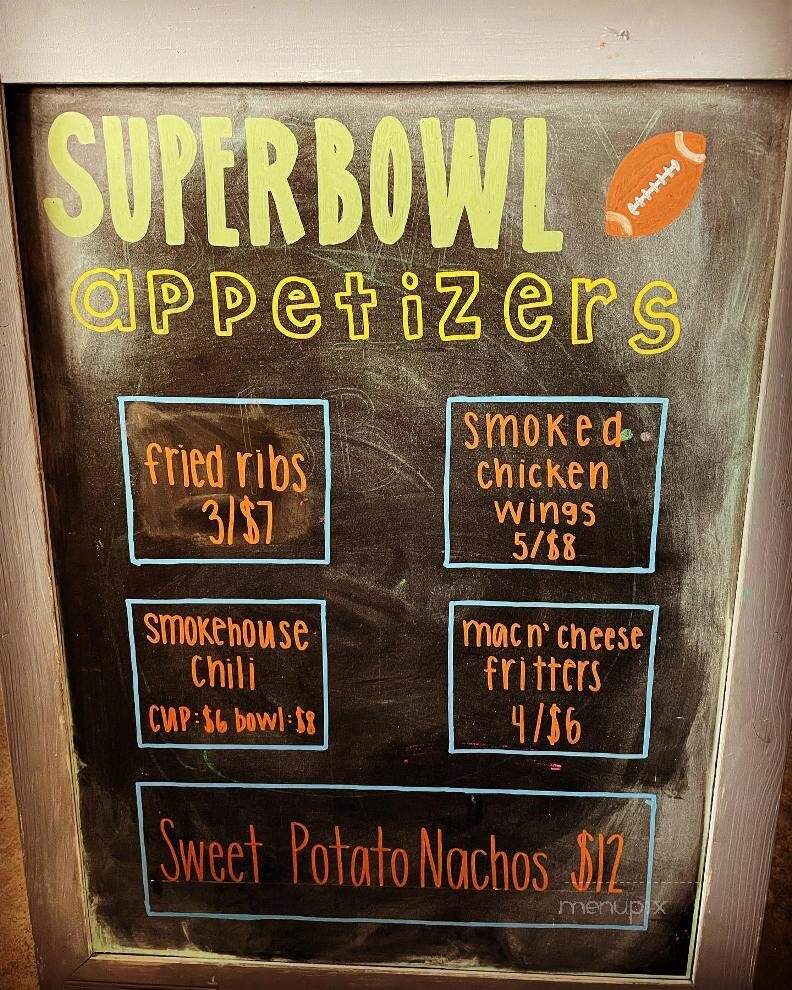 SUPERBOWL
appetizers
fried ribs
3/$7
smoked
chicken
wings
5/$8
smokehouse
chili
CUP: $6 bowl: $8
mac n' cheese
fritters
4/$6
Sweet Potato Nachos $12
menupix